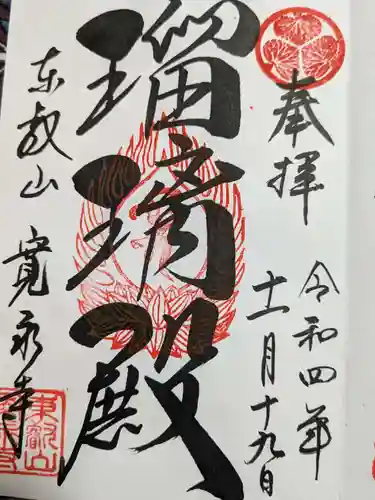 奉拝
令和四年
十一月十九日
瑠璃殿
東叡山
寛永寺